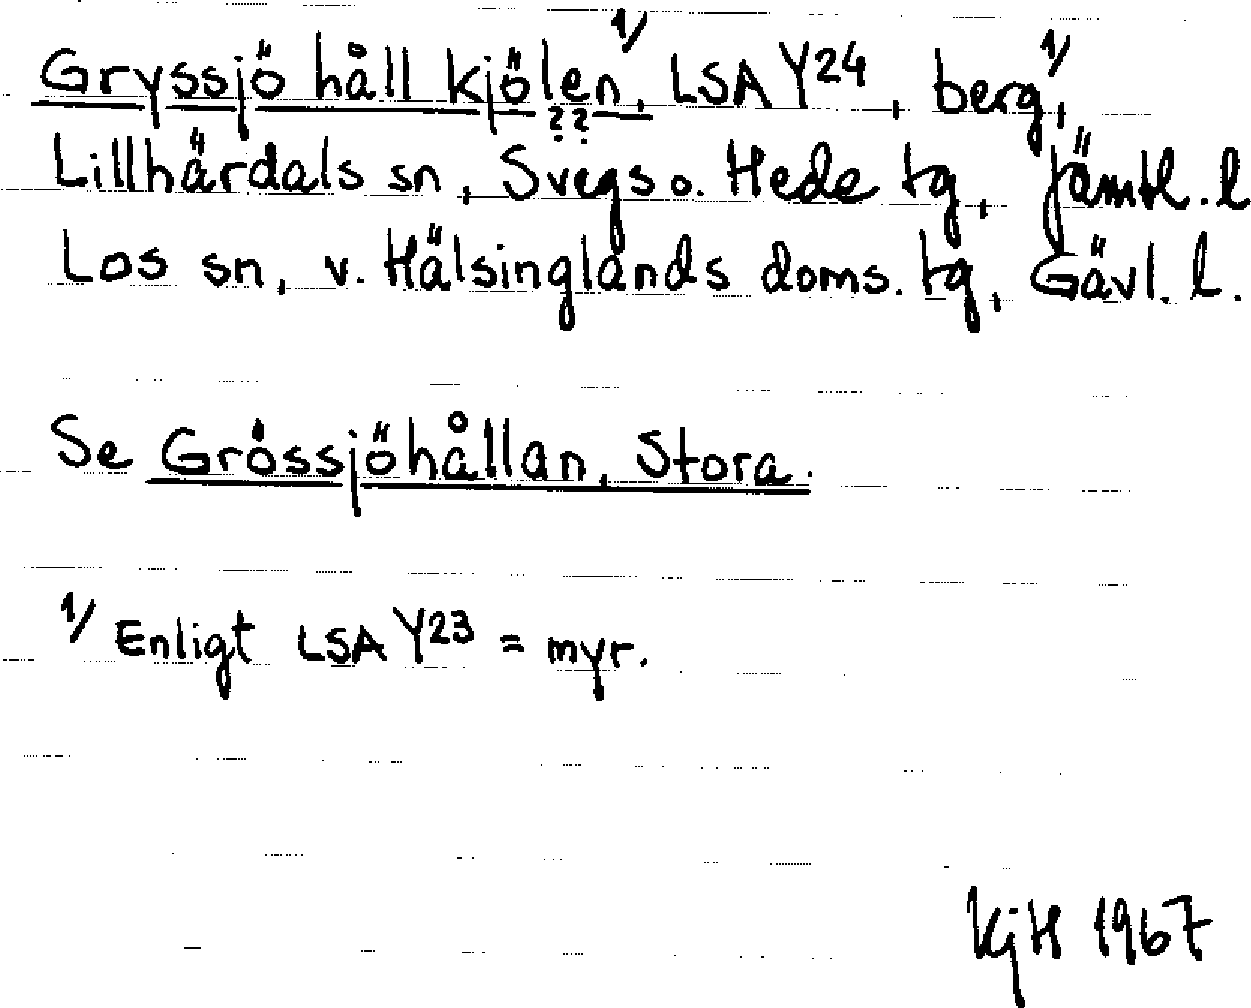 Gryssjö håll kjölen, 1/ LSA Y24, berg 1/,
??
Lillhärdals sn, Svegs o. Hede tg, Jämtl. l
Los sn, v. Hälsinglands doms. tg, Gävl. l.
Se Grössjöhållan, Stora.
1/ Enligt LSA Y23 = myr.
KjH 1967